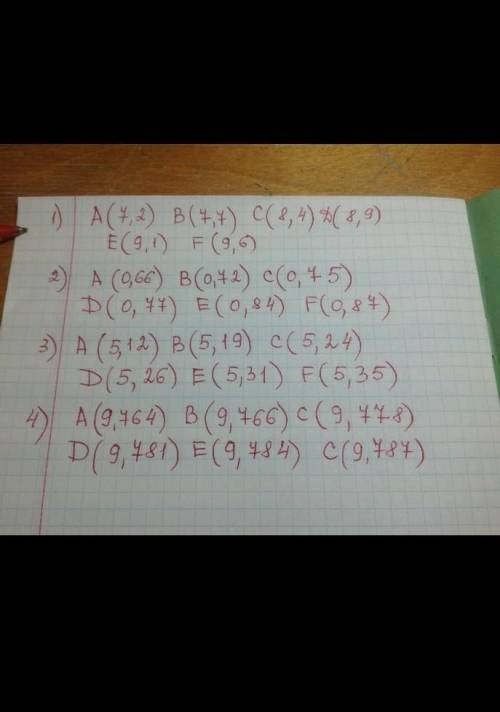 1) A(7,2) B(7,7) C(8,4) D(8,9)
E(9,1) F(9,6)
2) A(0,66) B(0,72) C(0,75)
D(0,77) E(0,84) F(0,87)
3) A(5,12) B(5,19) C(5,24)
D(5,26) E(5,31) F(5,35)
4) A(9,764) B(9,766) C(9,778)
D(9,781) E(9,784) C(9,787)